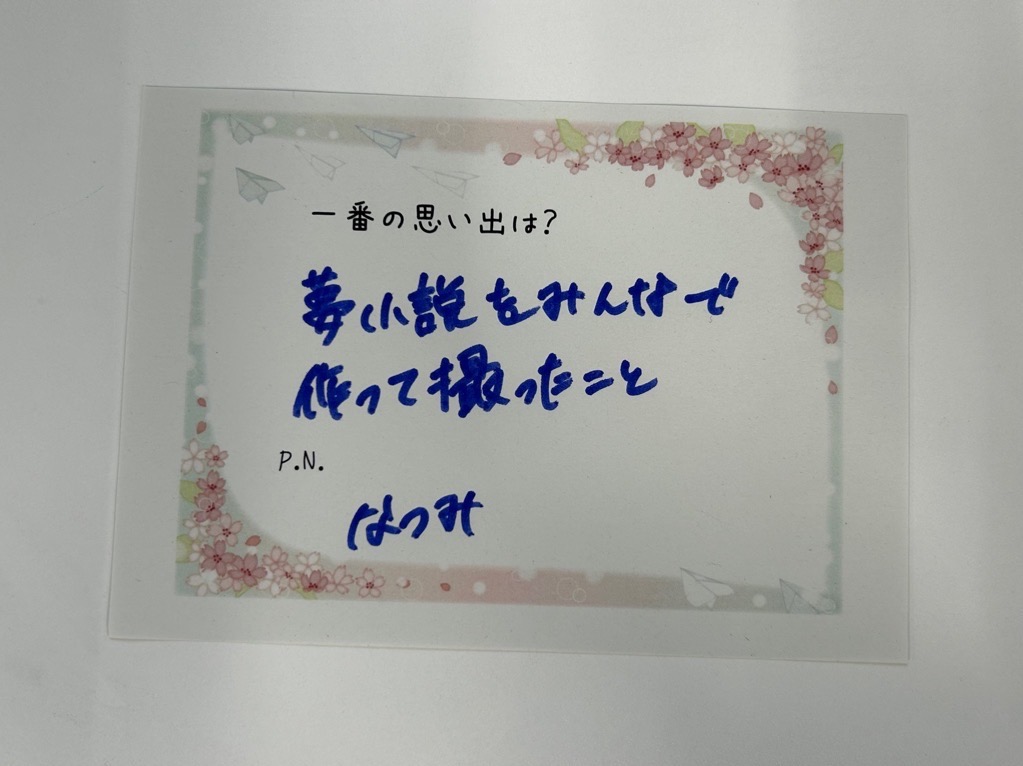 一番の思い出は?
夢小説をみんなで
作って撮ったこと
P.N.
なつみ